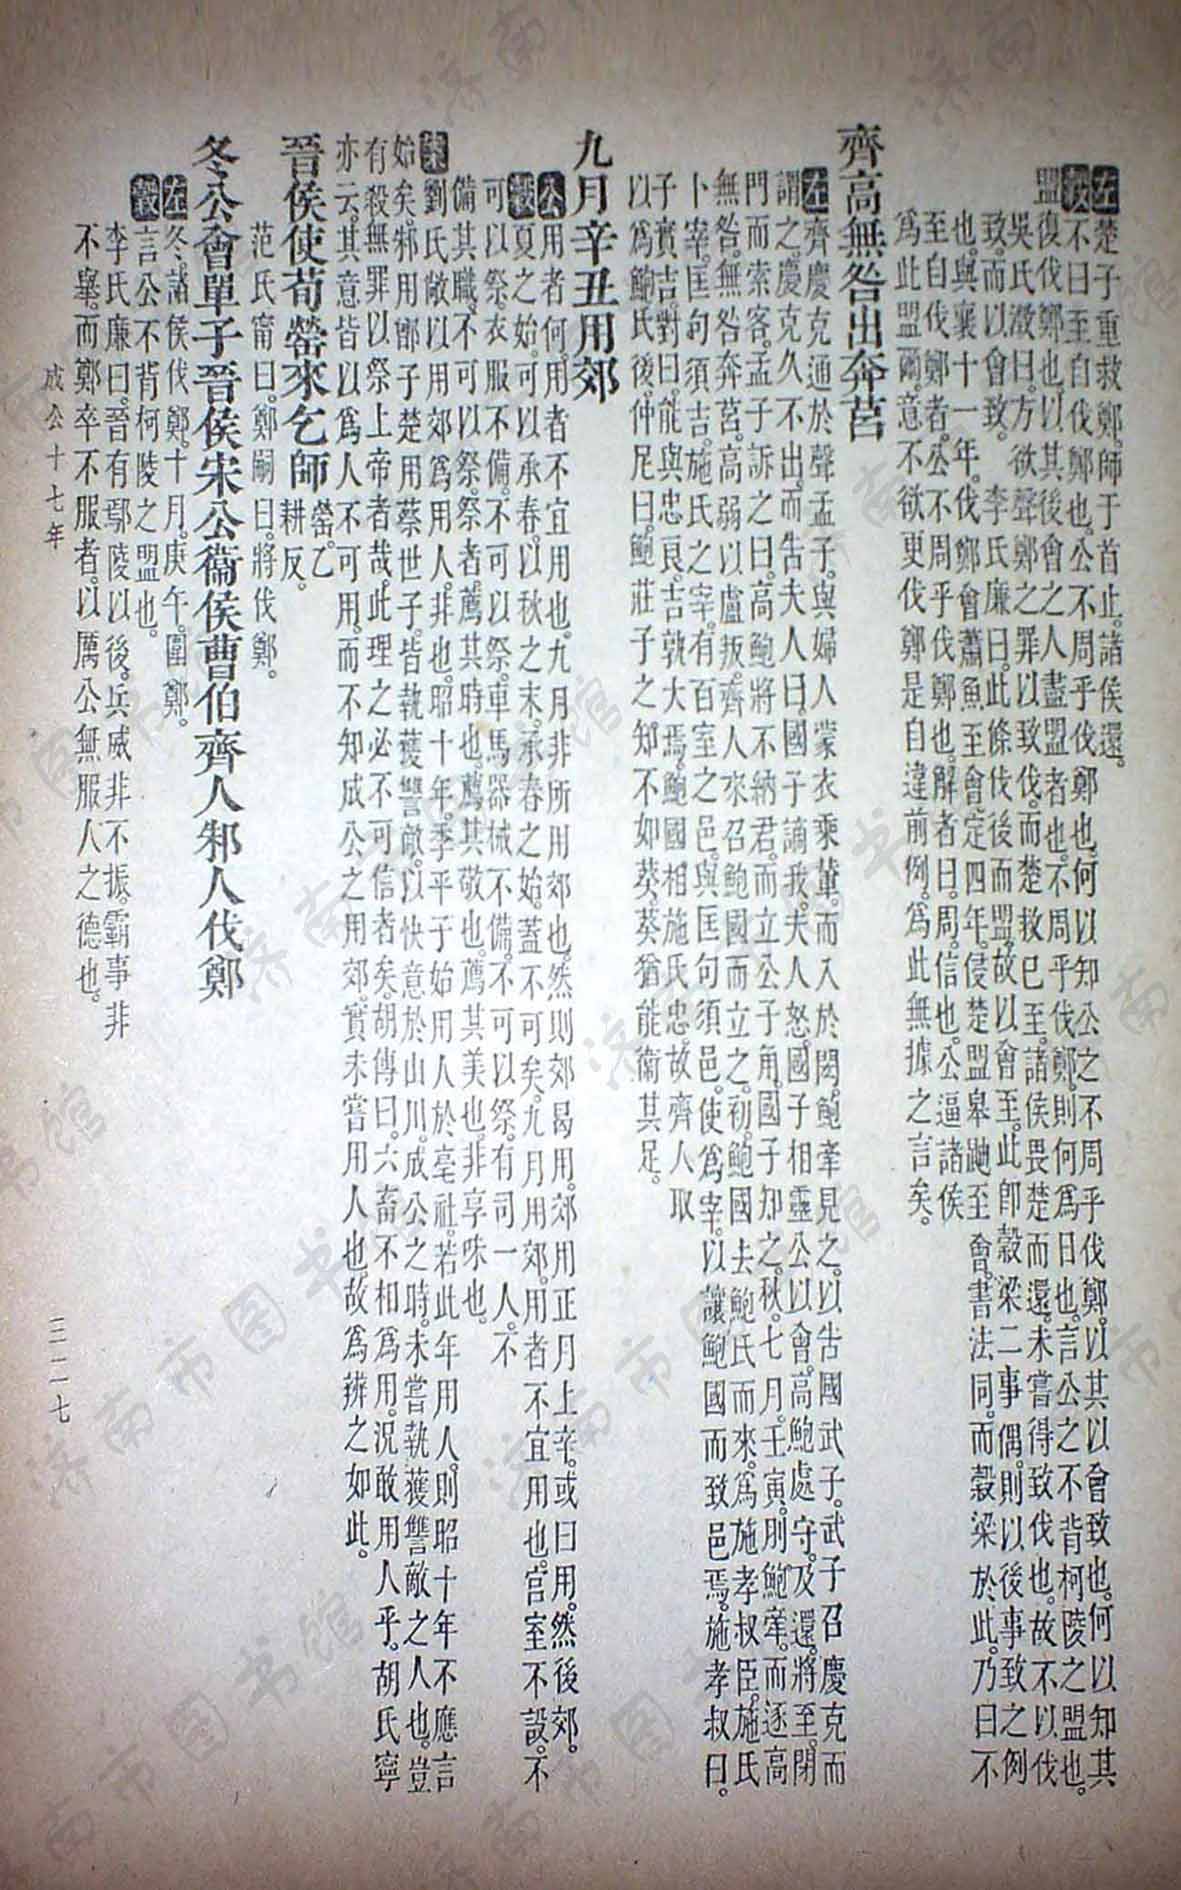 左楚子重救鄭。師于首止。諸侯還。
穀不曰至自伐鄭也。公不周乎伐鄭也。何以知公之不周乎伐鄭。以其以會致也。何以知其
盟復伐鄭也。以其後會之人盡盟者也。不周乎伐鄭。則何爲日也。言公之不背柯陵之盟也。
吳氏澂曰。方欲聲鄭之罪以致伐。而楚救已至。諸侯畏楚而還。未嘗得致伐也。故不以伐
致。而以會致。 李氏廉曰。此條伐後而盟。故以會至。此卽穀梁二事偶。則以後事致之例
也。與襄十一年。伐鄭會蕭魚至會。定四年。侵楚盟皋鼬至會。書法同。而穀梁於此。乃曰不
至自伐鄭者。公不周乎伐鄭也。解者曰。周。信也。公逼諸侯
爲此盟爾。意不欲更伐鄭。是自違前例。爲此無據之言矣。
齊高無咎出奔莒
左齊慶克通於聲孟子。與婦人蒙衣乘輦。而入於閎。鮑牽見之。以告國武子。武子召慶克而
謂之。慶克久不出。而告夫人曰。國子謫我。夫人怒。國子相靈公以會。高鮑處守。及還。將至。閉
門而索客。孟子訴之曰。高鮑將不納君。而立公子角。國子知之。秋。七月。壬寅。刖鮑牽。而逐高
無咎。無咎奔莒。高弱以盧叛。齊人來召鮑國而立之。初。鮑國去鮑氏而來。爲施孝叔臣。施氏
卜宰。匡句須吉。施氏之宰。有百室之邑。與匡句須邑。使爲宰。以讓鮑國而致邑焉。施孝叔曰。
子實吉。對曰。能與忠良。吉孰大焉。鮑國相施氏忠。故齊人取
以爲鮑氏後。仲尼曰。鮑莊子之知不如葵。葵猶能衞其足。
九月辛丑用郊
公用者何。用者不宜用也。九月非所用郊也。然則郊曷用。郊用正月上辛。或曰用。然後郊。
穀夏之始。可以承春。以秋之末。承春之始。蓋不可矣。九月用郊。用者不宜用也。宮室不設。不
可以祭。衣服不備。不可以祭。車馬器械不備。不可以祭。有司一人。不
備其職。不可以祭。祭者。薦其時也。薦其敬也。薦其美也。非享味也。
案劉氏敞以用郊爲用人。非也。昭十年。季平子始用人於亳社。若此年用人。則昭十年不應言
始矣。邾用鄫子。楚用蔡世子。皆執獲讐敵。以快意於山川。成公之時。未嘗執獲讐敵之人也。豈
有殺無罪以祭上帝者哉。此理之必不可信者矣。胡傳曰。六畜不相爲用。況敢用人乎。胡氏寧
亦云。其意皆以爲人不可用。而不知成公之用郊。實未嘗用人也。故爲辨之如此。
晉侯使荀罃來乞師 罃。乙耕反。
范氏甯曰。鄭嗣曰。將伐鄭。
冬公會單子晉侯宋公衞侯曹伯齊人邾人伐鄭
左冬。諸侯伐鄭。十月。庚午。圍鄭。
穀言公不背柯陵之盟也。
李氏廉曰。晉有鄢陵以後。兵威非不振。霸事非
不舉。而鄭卒不服者。以厲公無服人之德也。
成公十七年
三一一七
济南市图书馆